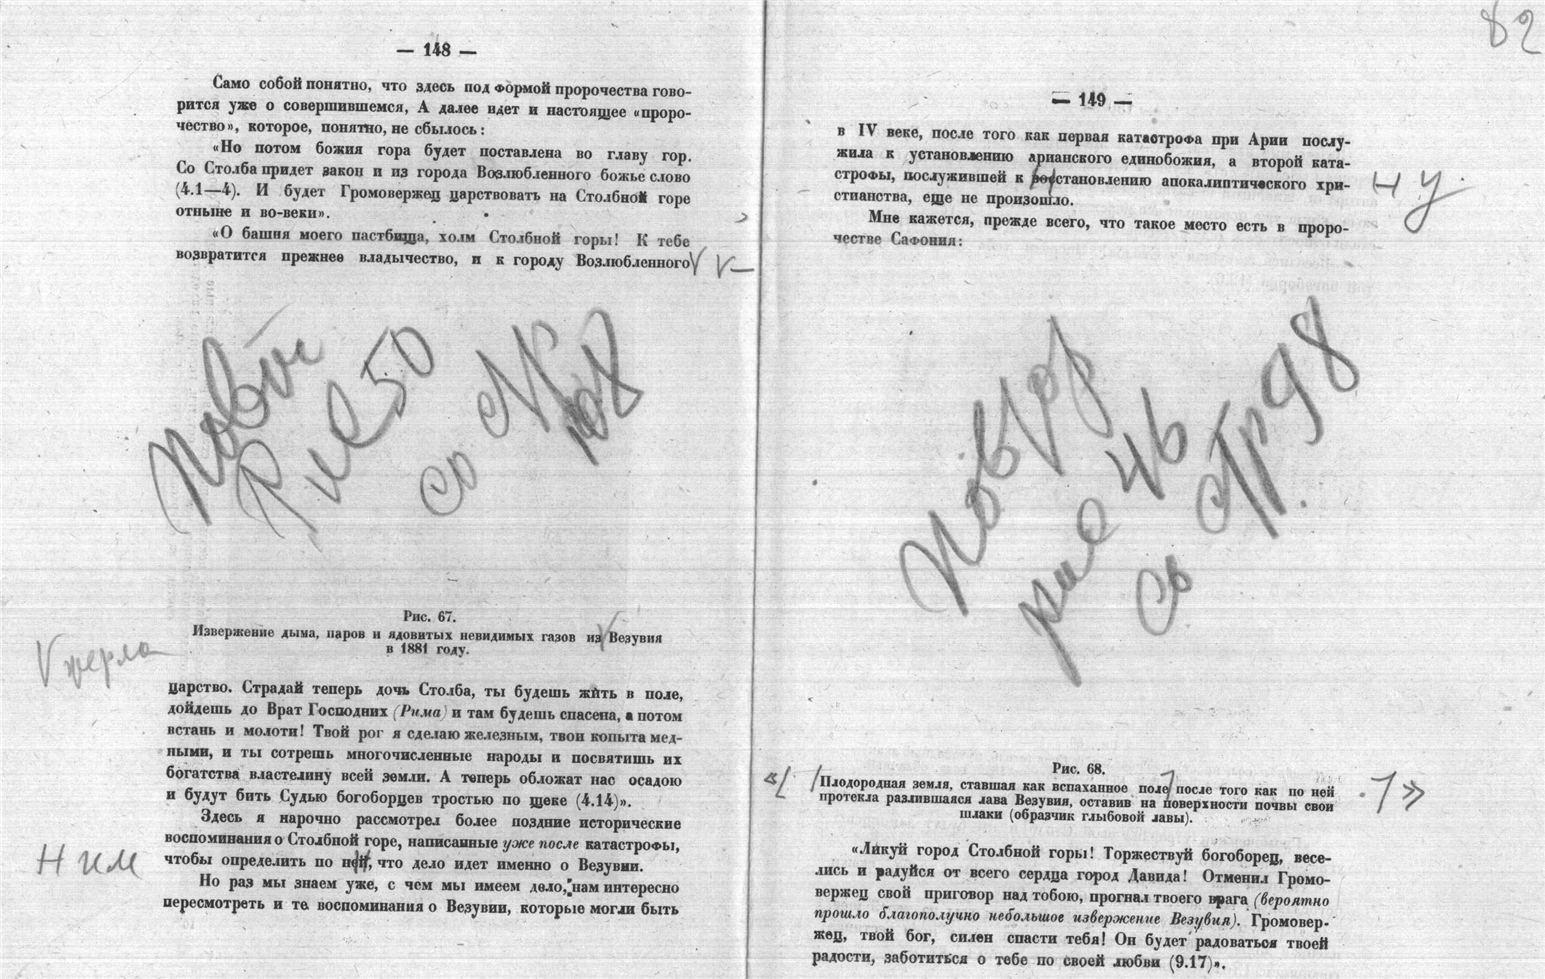 — 148 —
Само собой понятно, что здесь под формой пророчества гово-
рится уже о совершившемся. А далее идет и настоящее «проро-
чество», которое, понятно, не сбылось:
«Но потом божия гора будет поставлена во главу гор.
Со Столба придет закон и из города Возлюбленного божье слово
(4.1—4). И будет Громовержец царствовать на Столбной горе
отныне и во-веки».
«О башня моего пастбища, холм Столбной горы! К тебе
возвратится прежнее владычество, и к городу Возлюбленного
Рис 50
со
Рис. 67.
Извержение дыма, паров и ядовитых невидимых газов из Везувия
в 1881 году.
жерла
царство. Страдай теперь дочь Столба, ты будешь жить в поле,
дойдешь до Врат Господних (Рима) и там будешь спасена, а потом
встань и молоти! Твой рог я сделаю железным, твои копыта мед-
ными, и ты сотрешь многочисленные народы и посвятишь их
богатства властелину всей земли. А теперь обложат нас осадою
и будут бить Судью богоборцев тростью по щеке (4.14)».
Здесь я нарочно рассмотрел более поздние исторические
воспоминания о Столбной горе, написанные уже после катастрофы,
чтобы определить по ней, что дело идет именно о Везувии.
Н им
Но раз мы знаем уже, с чем мы имеем дело, нам интересно
пересмотреть и те воспоминания о Везувии, которые могли быть
82
— 149 —
в IV веке, после того как первая катастрофа при Арии послу-
жила к установлению арианского единобожия, а второй ката-
строфы, послужившей к восстановлению апокалиптического хри-
стианства, еще не произошло.
Н у
Мне кажется, прежде всего, что такое место есть в проро-
честве Сафония:
рис 46
со стр 98
Рис. 68.
Плодородная земля, ставшая как вспаханное поле после того как по ней
протекла разлившаяся лава Везувия, оставив на поверхности почвы свои
шлаки (образчик глыбовой лавы).
«Ликуй город Столбной горы! Торжествуй богоборец, весе-
лись и радуйся от всего сердца город Давида! Отменил Громо-
вержец свой приговор над тобою, прогнал твоего врага (вероятно
прошло благополучно небольшое извержение Везувия). Громовер-
жец, твой бог, силен спасти тебя! Он будет радоваться твоей
радости, заботиться о тебе по своей любви (9.17)».